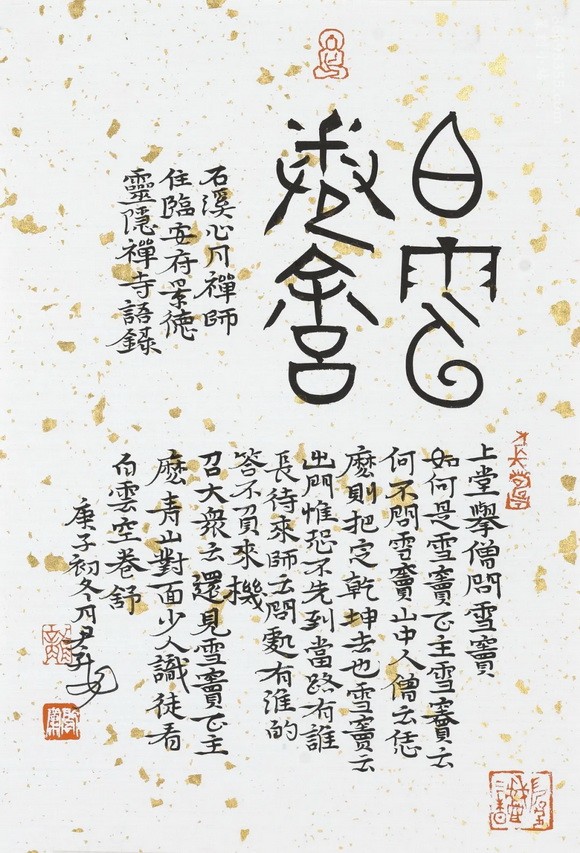 白雲
卷舒
石溪心月禪師
住臨安府景德
靈隱禪寺語錄
上堂舉僧問雪竇
如何是雪竇正主雪竇云
何不問雪竇山中人僧云恁
麼則把定乾坤去也雪竇云
出門惟恐不先到當路有誰
長待來師云問處有准的
答不負來機
召大衆云還見雪竇正主
麼青山對面少人識徒看
白雲空卷舒
庚子初冬月